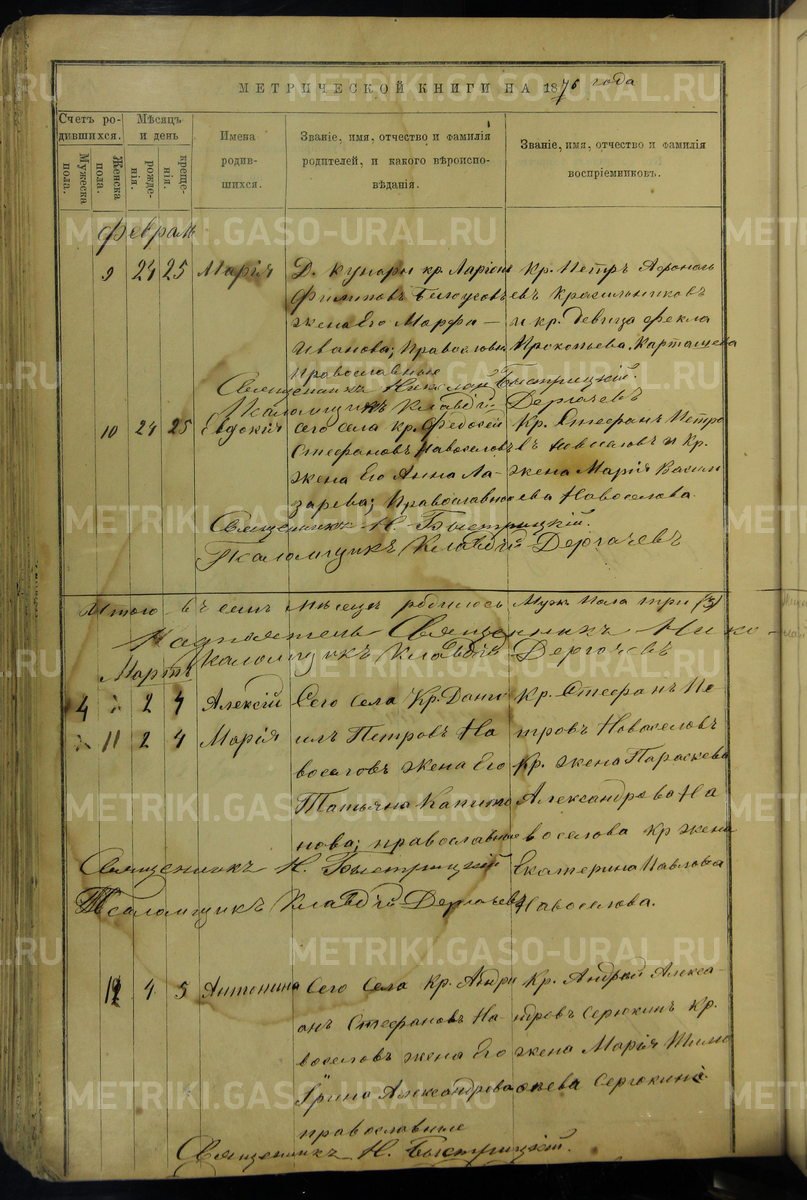 МЕТРИЧЕСКОЙ КНИГИ НА 1876 года
Счетъ ро-
дившихся.
Мужеска пола.
Женска пола.
Мѣсяцъ и день
рожде-
нія.
креще-
нія.
Имена
родив-
шихся.
Званіе, имя, отчество и фамилія
родителей, и какого вѣроиспо-
вѣданія.
Званіе, имя, отчество и фамилія
воспріемниковъ.
Февраль
9 24 25 Марія
Д. кр. Ларіонъ
Филиповъ Белоусовъ
жена Его Марфа
Иванова; Православны
православные
Кр. Петръ Афонась
евъ Красильниковъ
и кр. девица Фекла
Прокопьева
Священникъ Николай Быстрицкій.
Псаломщикъ Клавдій Дергачевъ
10 24 25 Евдокія
сего села кр. Федосей
Стефановъ Новоселовъ
жена Его Анна Ла-
зарева; Православные
Кр. Стефанъ Петро
въ Новоселовъ и Кр.
жена Марія Васил
ева Новоселова.
Священникъ Н. Быстрицкій.
Псаломщикъ Клавдій Дергачевъ
Итого въ семъ Месяце родилось Муж. Пола три (3)
Священникъ Нико-
лай
Псаломщикъ Клавдій Дергачевъ
Мартъ
4 " 2 4 Алексій
" 11 2 4 Марія
Сего Села Кр. Дани
илъ Петровъ Но
воселовъ жена Его
Татьяна Капито
нова; православные
Кр. Стефанъ Пе-
тровъ Новоселовъ
Кр. жена Параскева
Александрова Но
воселова кр жена
Екатерина Павлова
Новоселова.
Священникъ Н. Быстрицкій
Псаломщикъ Клавдій Дергачевъ
12 4 5 Антонина
Сего Села Кр. Андри
анъ Стефановъ Но-
воселовъ жена Его
Ірина Александрова
православные
Кр. Андрей Алекса-
ндровъ Серюкинъ Кр.
жена Марія Тимо
феева
Священникъ Н. Быстрицкій.
METRIKI.GASO-URAL.RU